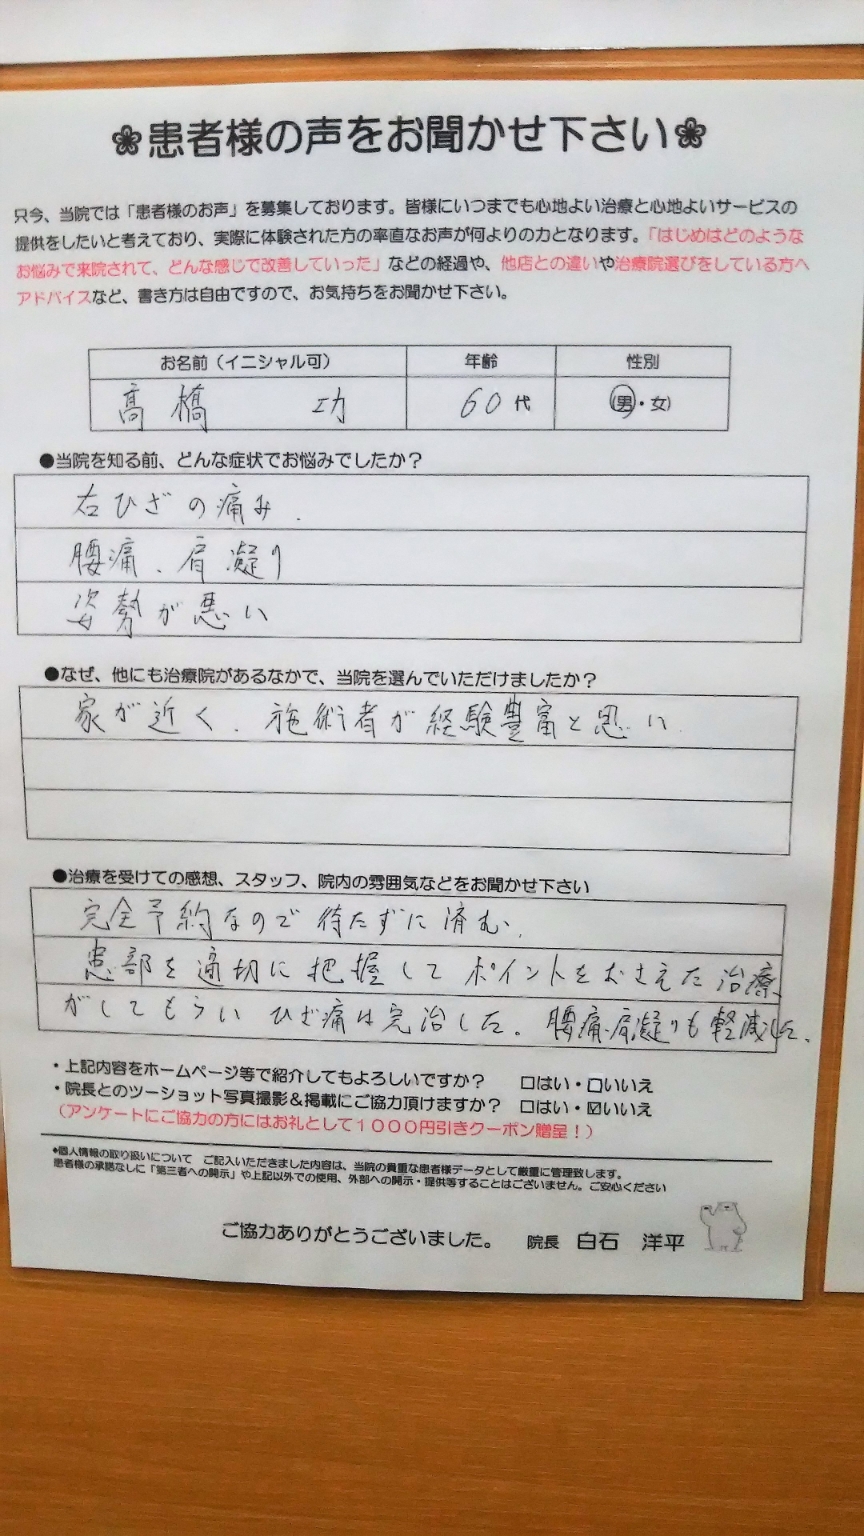 ❀患者様の声をお聞かせ下さい❀
只今、当院では「患者様のお声」を募集しております。皆様にいつまでも心地よい治療と心地よいサービスの
提供をしたいと考えており、実際に体験された方の率直なお声が何よりの力となります。「はじめはどのような
お悩みで来院されて、どんな感じで改善していった」などの経過や、他店との違いや治療院選びをしている方へ
アドバイスなど、書き方は自由ですので、お気持ちをお聞かせ下さい。
お名前（イニシャル可） 年齢 性別
髙橋 功 60代 男・女
●当院を知る前、どんな症状でお悩みでしたか？
右ひざの痛み.
腰痛、肩凝り
姿勢が悪い
●なぜ、他にも治療院があるなかで、当院を選んでいただけましたか？
家が近く、施術者が経験豊富と思い
●治療を受けての感想、スタッフ、院内の雰囲気などをお聞かせ下さい
完全予約なので待たずに済む、
患部を適切に把握してポイントをおさえた治療
がしてもらいひざ痛は完治した。腰痛、肩凝りも軽減した.
・上記内容をホームページ等で紹介してもよろしいですか？ □はい・□いいえ
・院長とのツーショット写真撮影＆掲載にご協力頂けますか？ □はい・☑いいえ
（アンケートにご協力の方にはお礼として１０００円引きクーポン贈呈！）
◆個人情報の取り扱いについて ご記入いただきました内容は、当院の貴重な患者様データとして厳重に管理致します。
患者様の承諾なしに「第三者への開示」や上記以外での使用、外部への開示・提供等することはございません。ご安心ください
ご協力ありがとうございました。 院長 白石 洋平